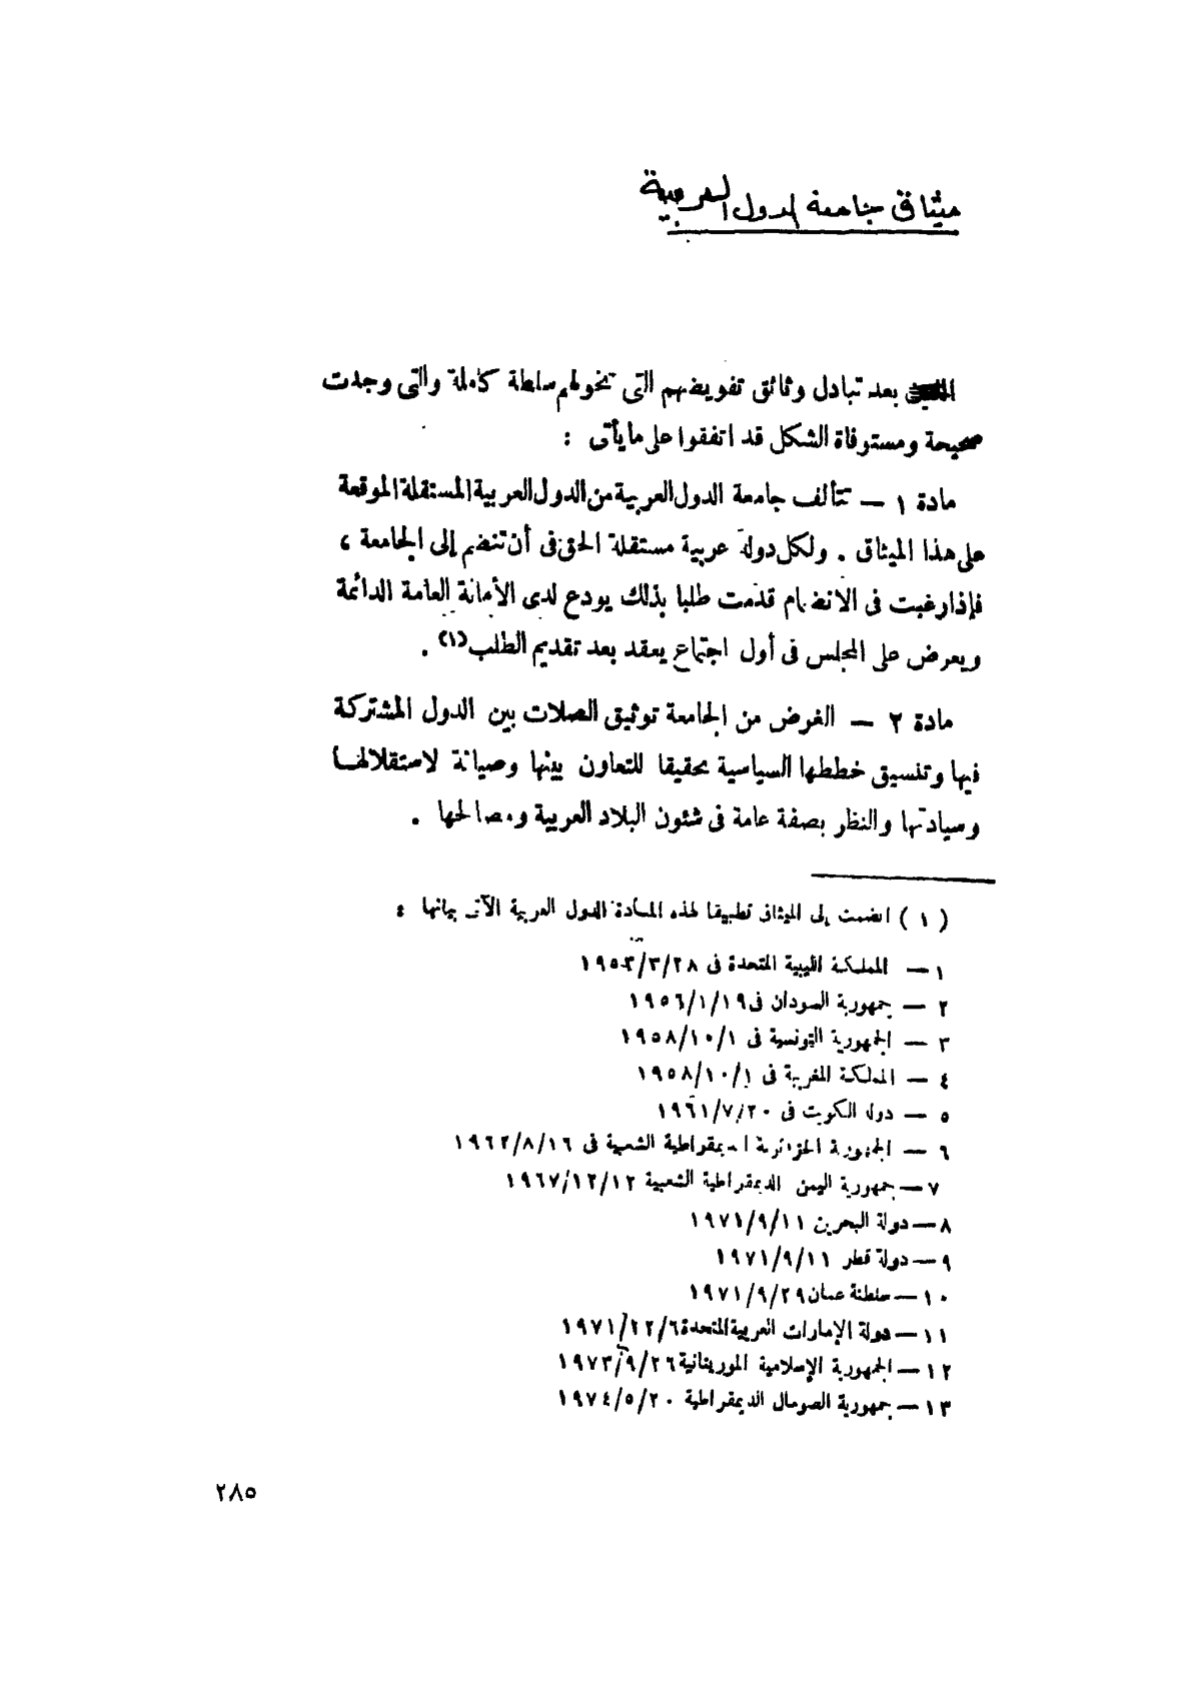 ميثاق جامعة الدول العربية
بعد تبادل وثائق تفويضهم التى تخولهم سلطة كاملة والتى وجدت
صحيحة ومستوفاة الشكل قد اتفقوا على ما يأتى :
مادة ١ — تتألف جامعة الدول العربية من الدول العربية المستقلة الموقعة
على هذا الميثاق . ولكل دولة عربية مستقلة الحق فى أن تنضم إلى الجامعة ،
فإذا رغبت فى الانضمام قدمت طلبا بذلك يودع لدى الأمانة العامة الدائمة
ويعرض على المجلس فى أول اجتماع يعقد بعد تقديم الطلب (١) .
مادة ٢ — الغرض من الجامعة توثيق الصلات بين الدول المشتركة
فيها وتنسيق خططها السياسية تحقيقا للتعاون بينها وصيانة لاستقلالها
وسيادتها والنظر بصفة عامة فى شئون البلاد العربية ومصالحها .
(١) انضمت إلى الميثاق تطبيقا لهذه المادة الدول العربية الآتى بيانها :
١ — المملكة الليبية المتحدة فى ١٩٥٣/٣/٢٨
٢ — جمهورية السودان فى ١٩٥٦/١/١٩
٣ — الجمهورية التونسية فى ١٩٥٨/١٠/١
٤ — المملكة المغربية فى ١٩٥٨/١٠/١
٥ — دولة الكويت فى ١٩٦١/٧/٢٠
٦ — الجمهورية الجزائرية الديمقراطية الشعبية فى ١٩٦٢/٨/١٦
٧ — جمهورية اليمن الديمقراطية الشعبية ١٩٦٧/١٢/١٢
٨ — دولة البحرين ١٩٧١/٩/١١
٩ — دولة قطر ١٩٧١/٩/١١
١٠ — سلطنة عمان ١٩٧١/٩/٢٩
١١ — دولة الإمارات العربية المتحدة ١٩٧١/٢٢/٦
١٢ — الجمهورية الإسلامية الموريتانية ١٩٧٣/٩/٢٦
١٣ — جمهورية الصومال الديمقراطية ١٩٧٤/٥/٢٠
٢٨٥